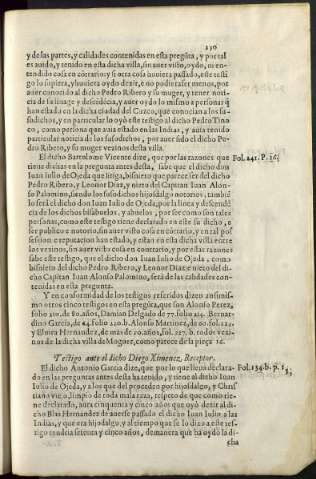 130
y de las partes, y calidades contenidas en esta pregũta, y por tal
es auido, y tenido en esta dicha villa, sin auer visto, oydo, ni en-
tendido cosa en cõtrario: y si otra cosa huuiera passado, este testi
go lo supiera, y huuiera oydo dezir, e no pudiera ser menos, por
auer conocido al dicho Pedro Ribero y su muger, y tener noti-
cia de su linage y decendẽcia, y auer oydo lo mismo a personas q̃
han estado en la dicha ciudad del Cuzco, que conocian a los su-
sodichos, y en particular lo oyò este testigo al dicho Pedro Tino
co, como persona que auia estado en las Indias, y auia tenido
particular noticia de los susodichos, por auer sido el dicho Pe-
dro Ribero, y su muger vezinos desta villa.
El dicho Bartolome Vicente dize, que por las razones que
tiene dichas en la pregunta antes desta, sabe que el dicho don
Iuan Iulio de Ojeda que litiga, bisnieto que parece ser del dicho
Pedro Ribero, y Leonor Diaz, y nieto del Capitan Iuan Alon-
so Palomino, siendo los susodichos hijosdalgo notorios, tambiẽ
lo serà el dicho don Iuan Iulio de Ojeda, por la linea y descendẽ
cia de los dichos bisabuelos, y abuelos, por ser como son tales
personas, como este testigo tiene declarado en este su dicho, o
ser publico e notorio, sin auer visto cosa en cõtrario, y en tal pos
session e reputacion han estado, y estan en la dicha villa entre
los vezinos, sin auer visto cosa en contrario, y por estas razones
sabe este testigo, que el dicho don Iuan Iulio de Ojeda, como
bisnieto del dicho Pedro Ribero, y Leonor Diaz: e nieto del di-
cho Capitan Iuan Alonso Palomino, serà de las calidades con-
tenidas en esta pregunta.
Y en conformidad de los testigos referidos dizen assimis-
mo otros cinco testigos en esta pregũta, que son Alonso Perez,
folio 210. de 80. años, Damian Delgado de 77. folio 214. Bernar-
dino Garcia, de 44. folio 220. b. Alonso Martinez, de 80. fol. 221.
y Eluira Hernandez, de mas de 70. años, fol. 227. b. todos vezi-
nos de la dicha villa de Moguer, como parece ante el dicho
Testigo ante el dicho Diego Ximenez, Receptor.
El dicho Antonio Garcia dize, que por lo que lleua declara-
do en las preguntas antes desta ha tenido, y tiene al dicho Iuan
Iulio de Ojeda, y a los que del proceden por hijodalgo, y Chris
tiano viejo, limpio de toda mala raza, respeto de que como tie-
ne declarado, aura cinquenta y cinco años que oyò dezir al di-
cho Blas Hernandez de auerse passado el dicho Iuan Iulio a las
Indias, y que era hijodalgo, y al tiempo que se lo dixo a este tes-
tigo tendria setenta y cinco años, de manera que ha oydo la di-
cha
Fol. 241. P. 16.
Fol. 134. b. p. 13